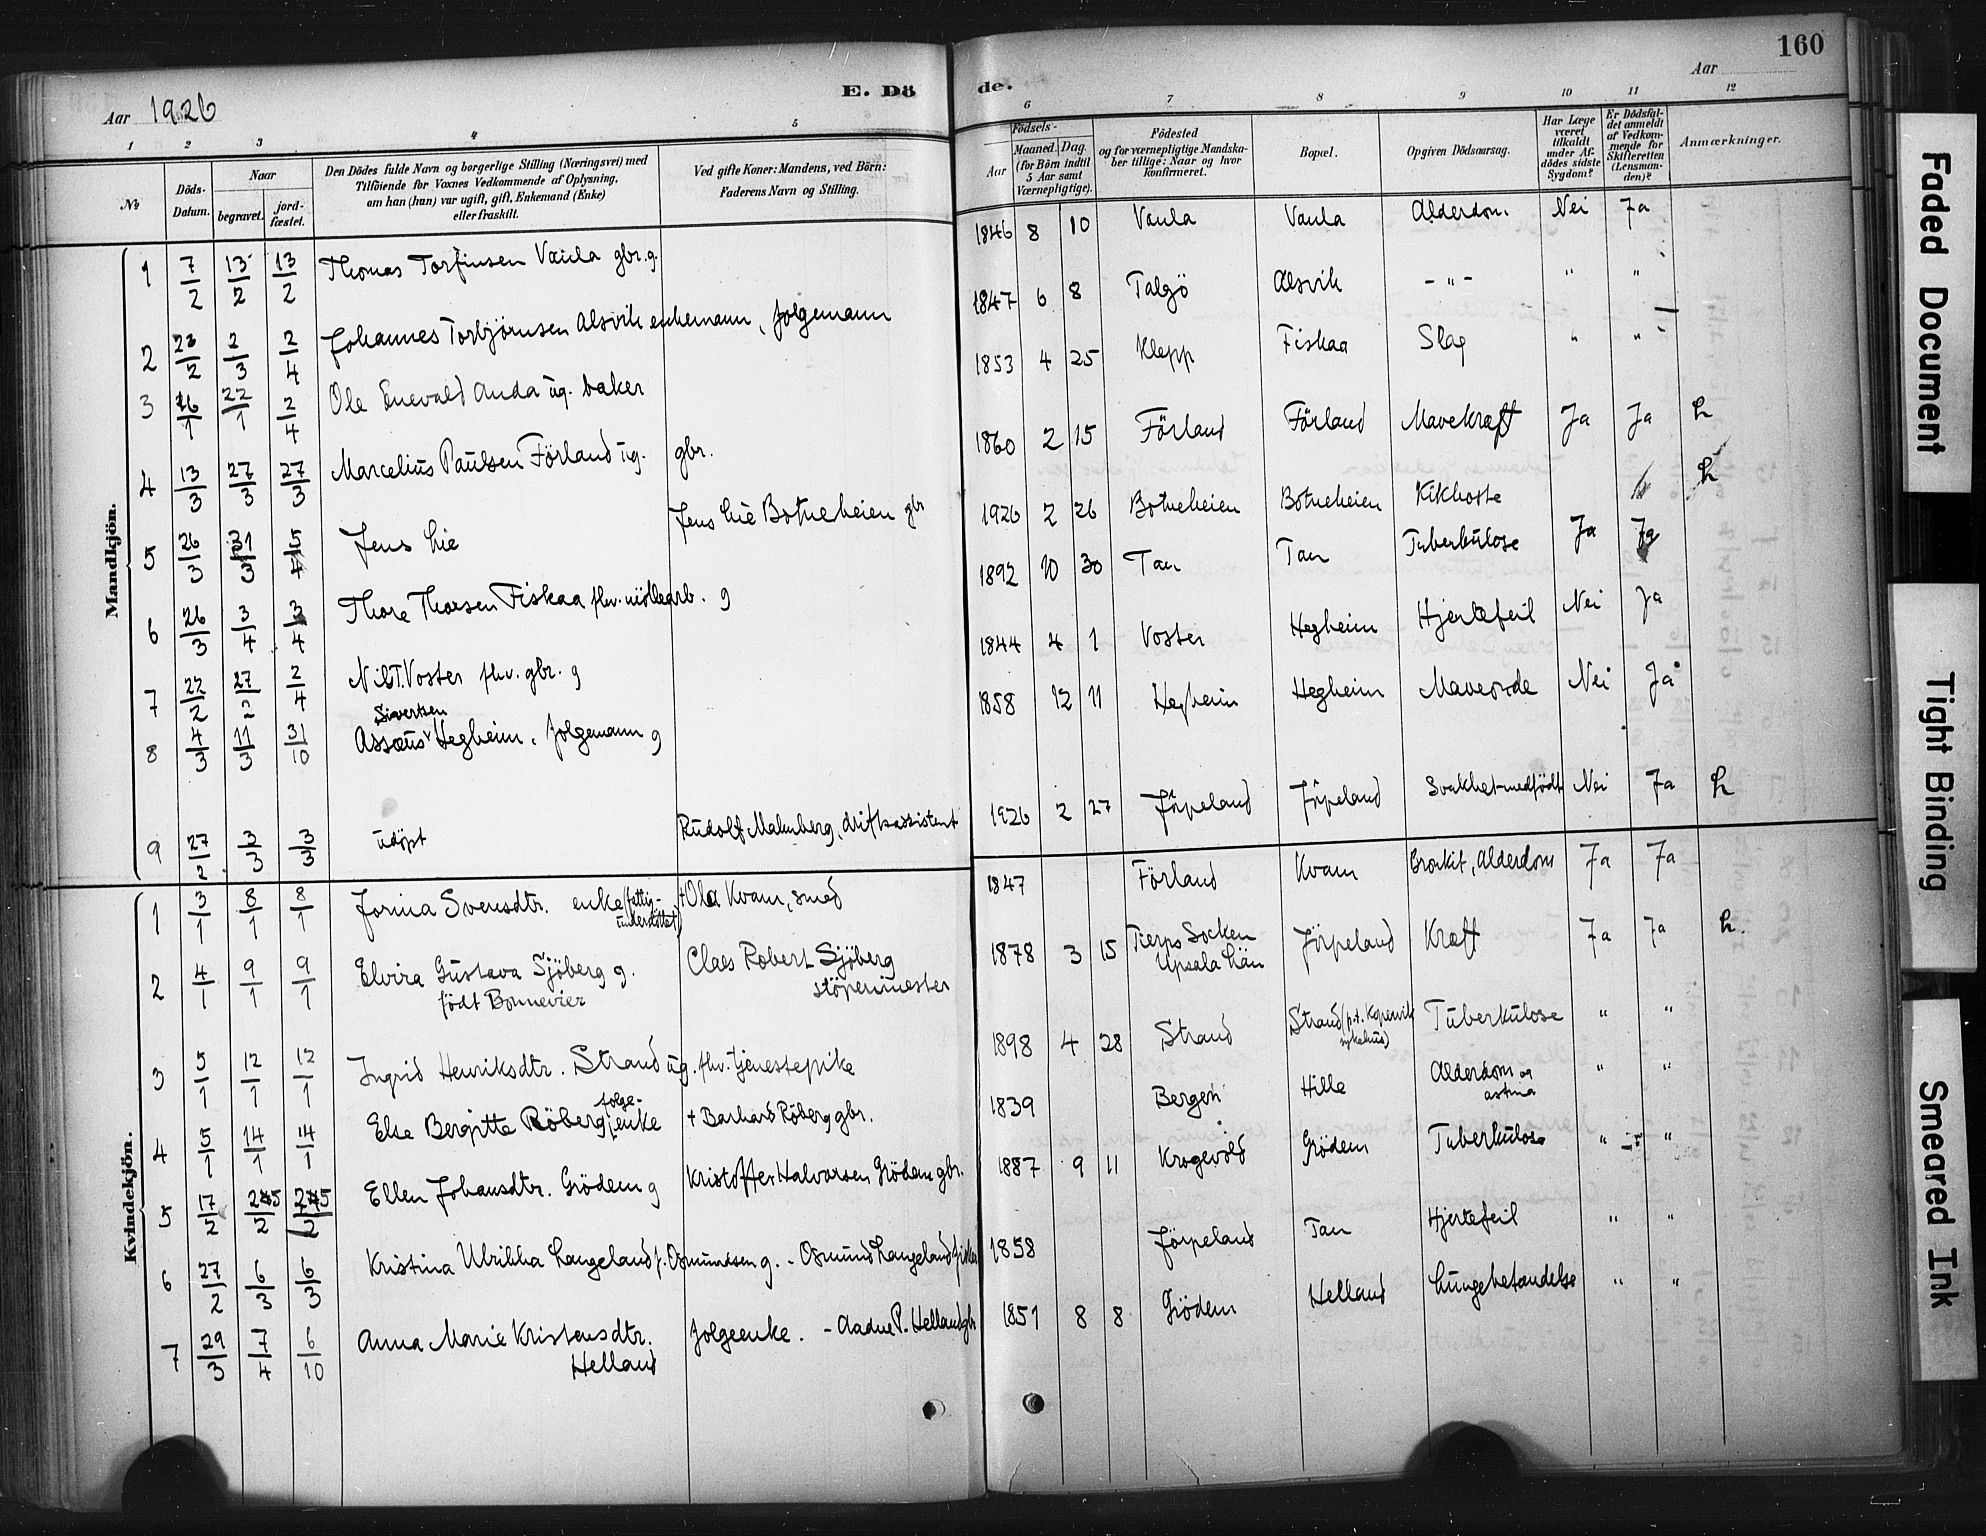 160
Aar 1926
E. Dö
de.
Aar
1 2 3 4 5
6 7 8 9 10 11 12
№
Döds-Datum.
Naar
begravet.
jord-fæstet.
Den Dödes fulde Navn og borgerlige Stilling (Næringsvei) med
Tilföiende for Voxnes Vedkommende af Oplysning,
om han (hun) var ugift, gift, Enkemand (Enke)
eller fraskilt.
Ved gifte Koner: Mandens, ved Börn:
Faderens Navn og Stilling.
Födsels-
Aar
Maaned. Dag.
(for Börn indtil
5 Aar samt
Værnepligtige).
Födested
og for værnepligtige Mandska-
ber tillige: Naar og hvor
konfirmeret.
Bopæl.
Opgiven Dödsaarsag.
Har Læge
været
tilkaldt
under Af-
dödes sidste
Sygdom?
Er Dödsfal-
det anmeldt
af Vedkom-
mende for
Skifteretten
(Lensman-
den)?
Anmærkninger.
Mandkjön.
1 7/2 13/2 13/2 Thomas Torfinsen Vaula gbr. g. 1846 8 10 Vaula Vaula Alderdom Nei Ja
2 23/2 2/3 2/4 Johannes Torbjørnsen Alsvik enkemann, folgemann 1847 6 8 Talgö Alsvik - " - " "
3 16/1 22/1 2/4 Ole Enevald Anda ug. baker 1853 4 25 Klepp Fiskaa Slag " "
4 13/3 27/3 27/3 Marcelius Paulsen Förland ug. gbr. 1860 2 15 Förland Förland Mavekræft Ja Ja L
5 26/3 31/3 5/4 Jens Lie Jens Lie Botneheien gbr 1926 2 26 Botneheien Botneheien Kikhoste L
6 26/3 3/4 3/4 Thore Thorsen Fiskaa fhv. möllearb. g 1892 10 30 Tau Tau Tuberkulose Ja Ja
7 22/2 27/2 2/4 Nils T. Voster fhv. gbr. g 1844 4 1 Voster Hegheim Hjertefeil Nei Ja
8 4/3 11/3 31/10 Assæus Sivertsen Hegheim, folgemann g 1858 12 11 Hegheim Hegheim Maveonde Nei Ja
9 27/2 3/3 3/3 udøpt Rudolf Malmberg, driftsassistent 1926 2 27 Jörpeland Jörpeland Svakhet-medfödt Nei Ja L
Kvindekjön.
1 3/1 8/1 8/1 Jorina Svensdtr. enke (fattig-understöttet) + Ola Kvam, smed 1847 Förland Kvam Bronkit, Alderdom Ja Ja
2 4/1 9/1 9/1 Elvira Gustava Sjöberg g. Claes Robert Sjöberg 1878 3 15 Tierps Socken Jörpeland Kræft Ja Ja L.
födt Bonnevier støperimester Upsala Län
3 5/1 12/1 12/1 Ingrid Henriksdtr. Strand ug. fhv. tjenestepike 1898 4 28 Strand Strand (p.t. Kopervik sykehus) Tuberkulose " "
4 5/1 14/1 14/1 Else Bergitte Röberg folgeenke + Barhard Röberg gbr. 1839 Bergen Hille Alderdom og astma " "
5 17/2 25/2 25/2 Ellen Johansdtr. Grödem g Kristoffer Halvorsen Grödem gbr. 1887 9 11 Krogevold Grödem Tuberkulose " "
6 27/2 6/3 6/3 Kristina Ulrikka Langeland f. Osmundsen g. - Osmund Langeland fisker 1858 Jörpeland Tau Hjertefeil " "
7 29/3 7/4 6/10 Anna Marie Kristensdtr. folgeenke. - Aadne P. Helland gbr 1851 8 8 Grödem Helland Lungebetændelse " "
Helland
Faded Document
Tight Binding
Smeared Ink